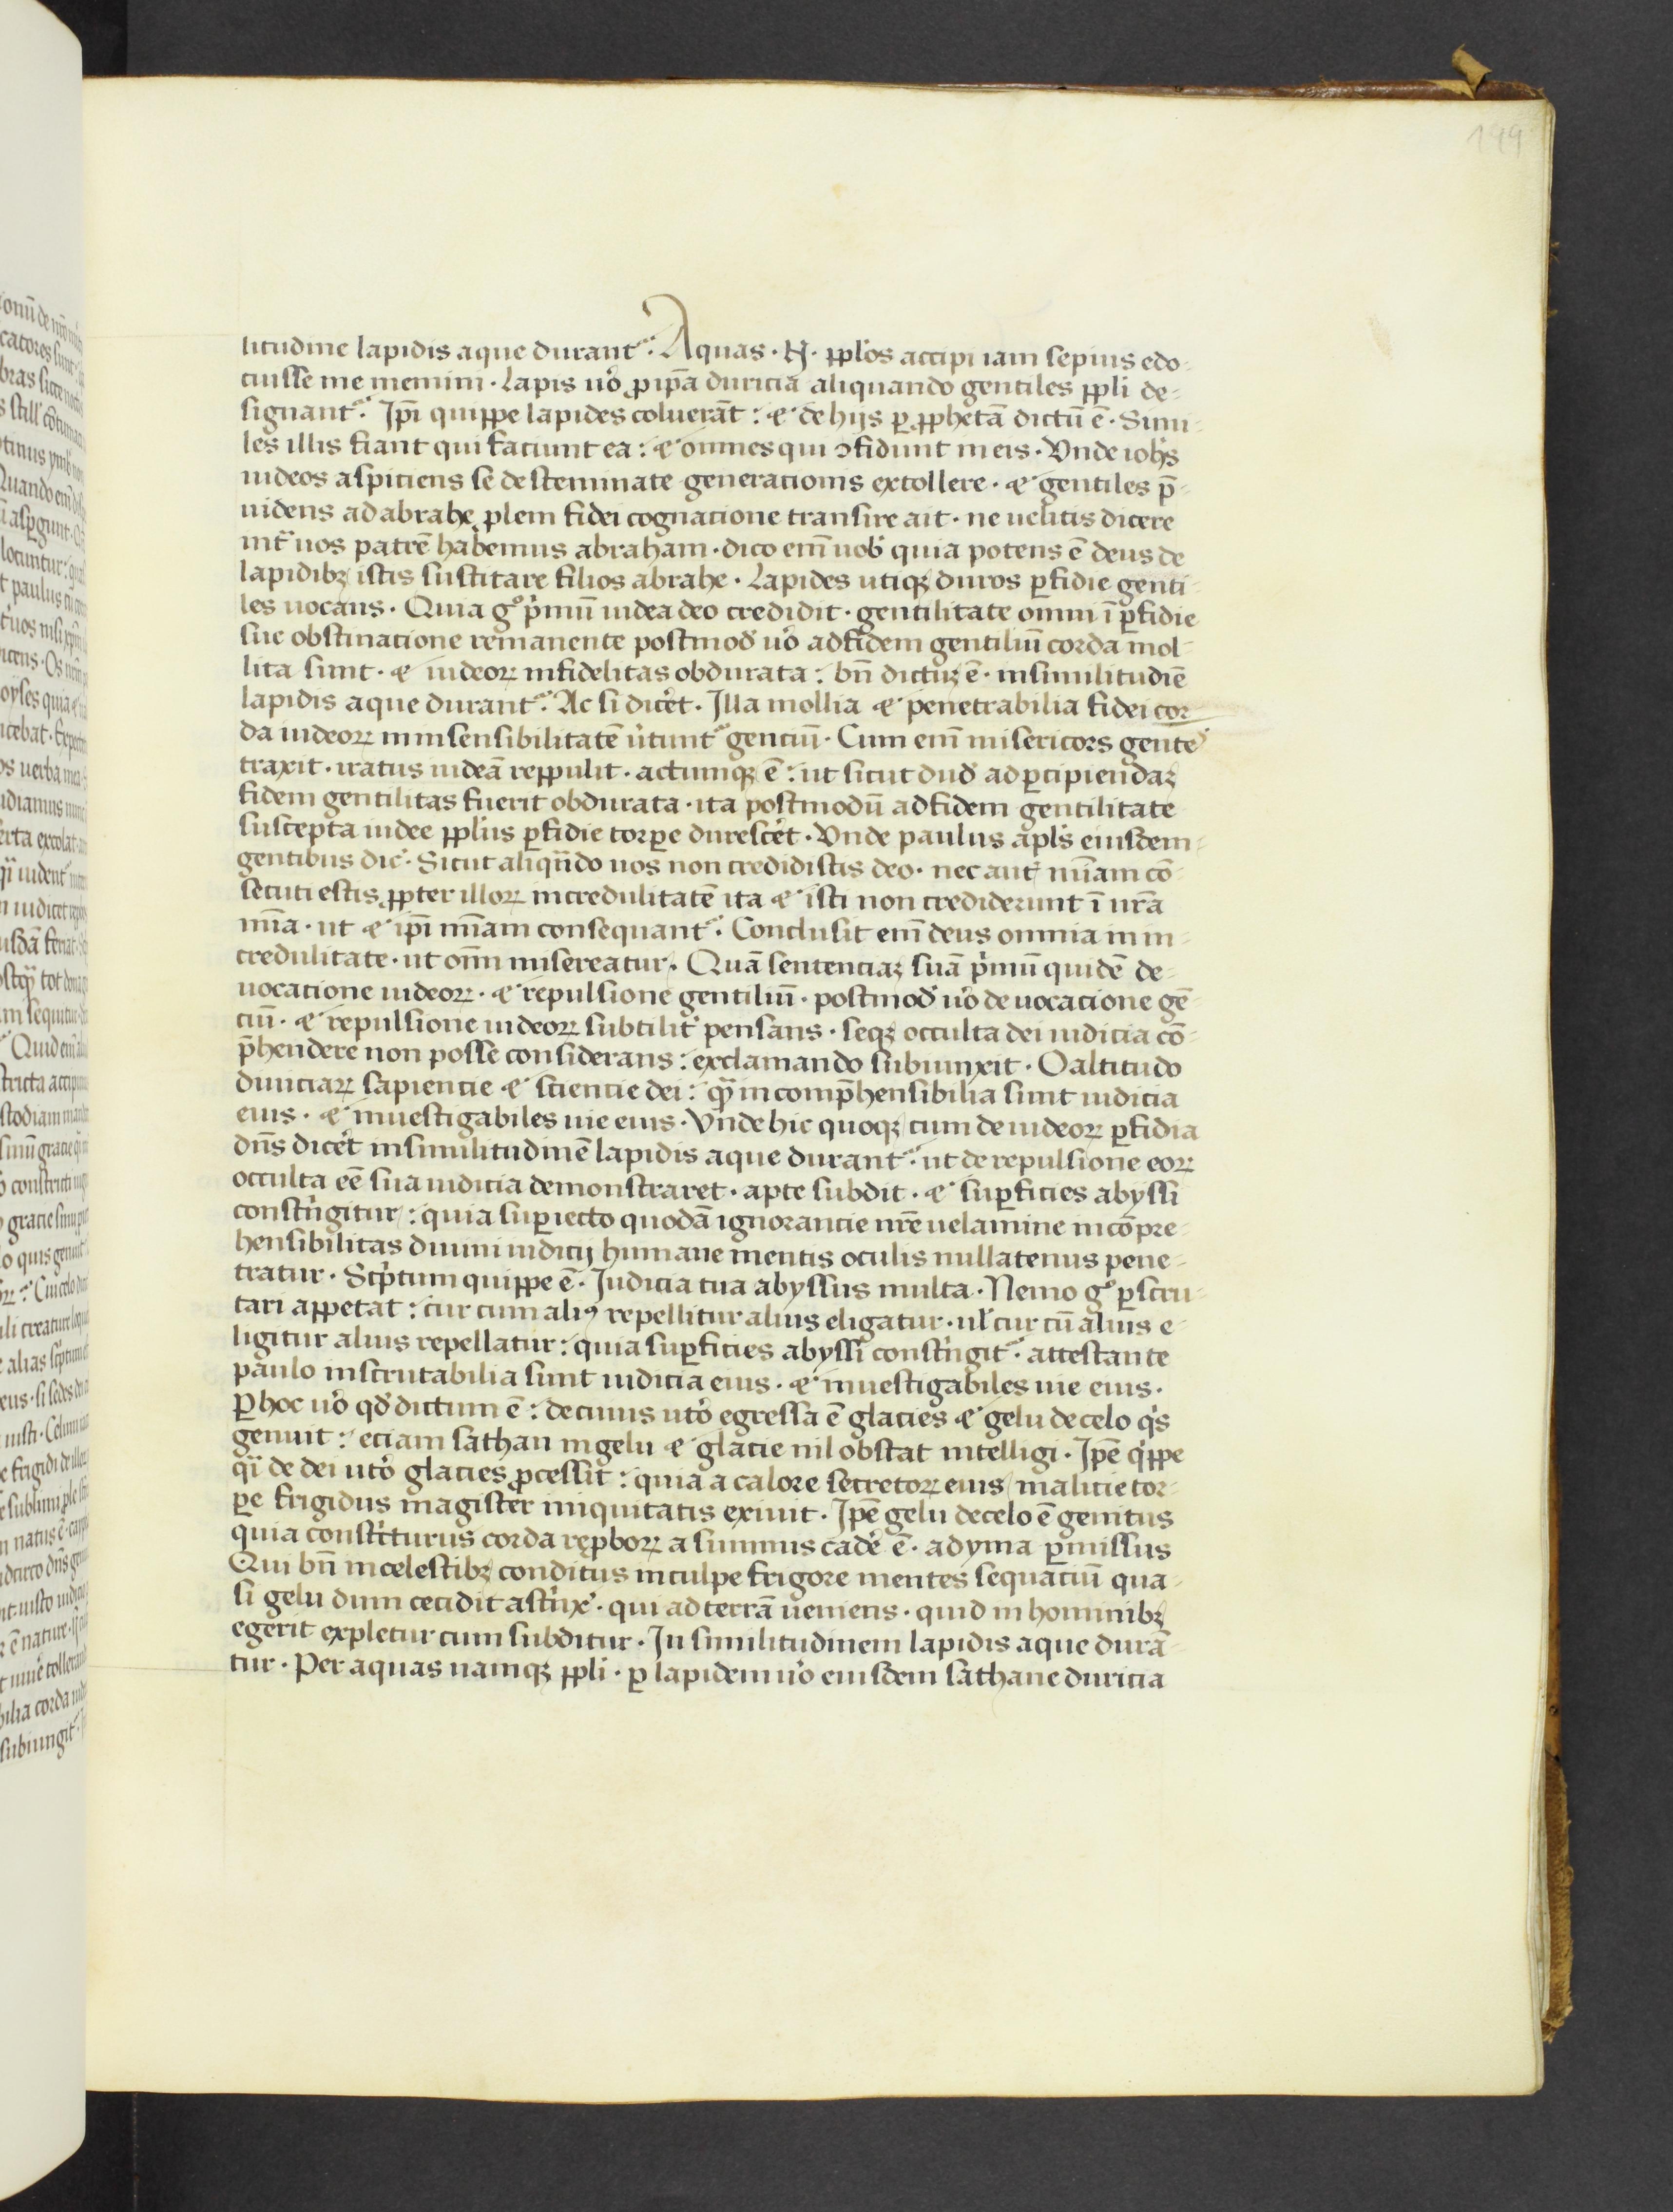 199
litudine lapidis aque durant᷑. Aquas · N · pp̱los accipi iam sepius edo-
cuisse me memini · Lapis uo͛ ꝓ ip̄a duricia aliquando gentiles pp̱li de-
signant᷑. Ip̄i quippe lapides coluerāt : & de hijs ꝑ ꝓphetā dictū ē · Simi-
les illis fiant qui faciunt ea : & omnes qui ↄfidunt in eis · Vnde ioh̄s
iudeos aspiciens se de stemmate generacionis extollere · & gentiles p̄-
uidens ad abrahę ꝓlem fidei cognacione transire ait · ne uelitis dicere
int͛ uos patrē habemus abraham · dico em̄ uob̾ quia potens ē deus de
lapidibꝫ istis suscitare filios abrahe · Lapides utiqꝫ duros ꝑfidie genti-
les uocans · Quia gͦ p͛mū iudea deo credidit · gentilitate omni ī ꝑfidie
sue obstinacione remanente postmod̾ uo͛ ad fidem gentiliū corda mol-
lita sunt · & iudeoꝝ infidelitas obdurata : bn̄ dictuꝫ ē · in similitudiē
lapidis aque durant᷑. Ac si dice͛t · Illa mollia & penetrabilia fidei cor-
da iudeoꝝ in insensibilitatē u͛tunt᷑ genciū · Cum em̄ misericors gente᷒
traxit · iratus iudeā reppulit · actumqꝫ ē : ut sicut dud̾ ad ꝑcipiendaꝫ
fidem gentilitas fuerit obdurata · ita postmodū ad fidem gentilitate
suscepta iudee pp̱lus ꝑfidie torpe duresce͛t · Vnde paulus apl̄s eiusdem
gentibus dic̾ · Sicut aliqn̄do uos non credidistis deo · nec aut̄ mīam cō-
secuti estis ꝓpter illoꝝ incredulitatē ita & isti non crediderunt ī ur̄a
mīa · ut & ip̄i mīam consequant᷑. Conclusit em̄ deus omnia in in-
credulitate · ut oīm misereatur. Quā sentenciaꝫ suā p͛mū quidē de-
uocacione iudeoꝝ · & repulsione gentiliū · postmod̾ uo͛ de uocacione gē-
ciū · & repulsione iudeoꝝ subtilit̾ pensans · seqꝫ occulta dei iudicia cō-
p̄hendere non posse considerans : exclamando subiunxit · O altitudo
diuiciaꝝ sapiencie & sciencie dei : qꝫ̄ incomp̄hensibilia sunt iudicia
eius · & inuestigabiles uie eius · Vnde hic quoqꝫ cum de iudeoꝝ ꝑfidia
dn̄s dice͛t in similitudinē lapidis aque durant᷑. ut de repulsione eoꝝ
occulta eē sua iudicia demonstraret · apte subdit · & suꝑficies abyssi
const͛ngitur : quia suꝑiecto quodā ignorancie nr̄e uelamine incōpre-
hensibilitas diuini iudicij humane mentis oculis nullatenus pene-
tratur · Sc͛ptum quippe ē · Iudicia tua abyssus multa · Nemo gͦ ꝑscru-
tari appetat : cur cum aliꝰ repellitur alius eligatur · ul̾ cur cū alius e-
ligitur alius repellatur : quia suꝑficies abyssi const͛ngit᷑. attestante
paulo inscrutabilia sunt iudicia eius · & inuestigabiles uie eius ·
ꝑ hoc uo͛ qd̾ dictum ē : de cuius ute͛o egressa ē glacies & gelu de celo q͛s
genuit : eciam sathan in gelu & glacie nil obstat intelligi · Ip̄e q͛ppe
qi̾ de dei uto͛ glacies ꝓcessit : quia a calore secretoꝝ eius malicie tor-
pe frigidus magister iniquitatis exiuit · Ip̄e gelu de celo ē genitus
quia const͛cturus corda reꝓboꝝ a summis cade͛ ē · ad yma ꝑmissus
Qui bn̄ in celestibꝫ conditus in culpe frigore mentes sequaciū qua-
si gelu dum cecidit ast͛nx̾ · qui ad terrā ueniens · quid in hominibꝫ
egerit expletur cum subditur · In similitudinem lapidis aque durā-
tur · Per aquas namqꝫ pp̱li · ꝑ lapidem uo͛ eiusdem sathane duricia